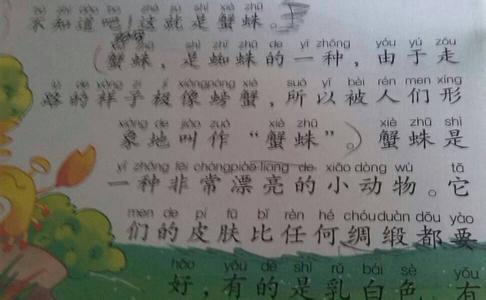 bù zhī dào ba zhè jiù shì xiè zhū
不知道吧！这就是蟹蛛。
zhū shì zhī zhū de yī zhǒng yóu yú zǒu
（蟹蛛，是蜘蛛的一种，由于走
lù de yàng zi jí xiàng páng xiè suǒ yǐ bèi rén men xíng
路的样子极像螃蟹，所以被人们形
xiàng de jiào zuò xiè zhū xiè zhū shì
象地叫作“蟹蛛”。）蟹蛛是
yī zhǒng fēi cháng piào liang de xiǎo dòng wù tā
一种非常漂亮的小动物。它
men de pí fū bǐ rèn hé chóu duàn dōu yào
们的皮肤比任何绸缎都要
hǎo yǒu de shì rǔ bái sè yǒu
好，有的是乳白色，有